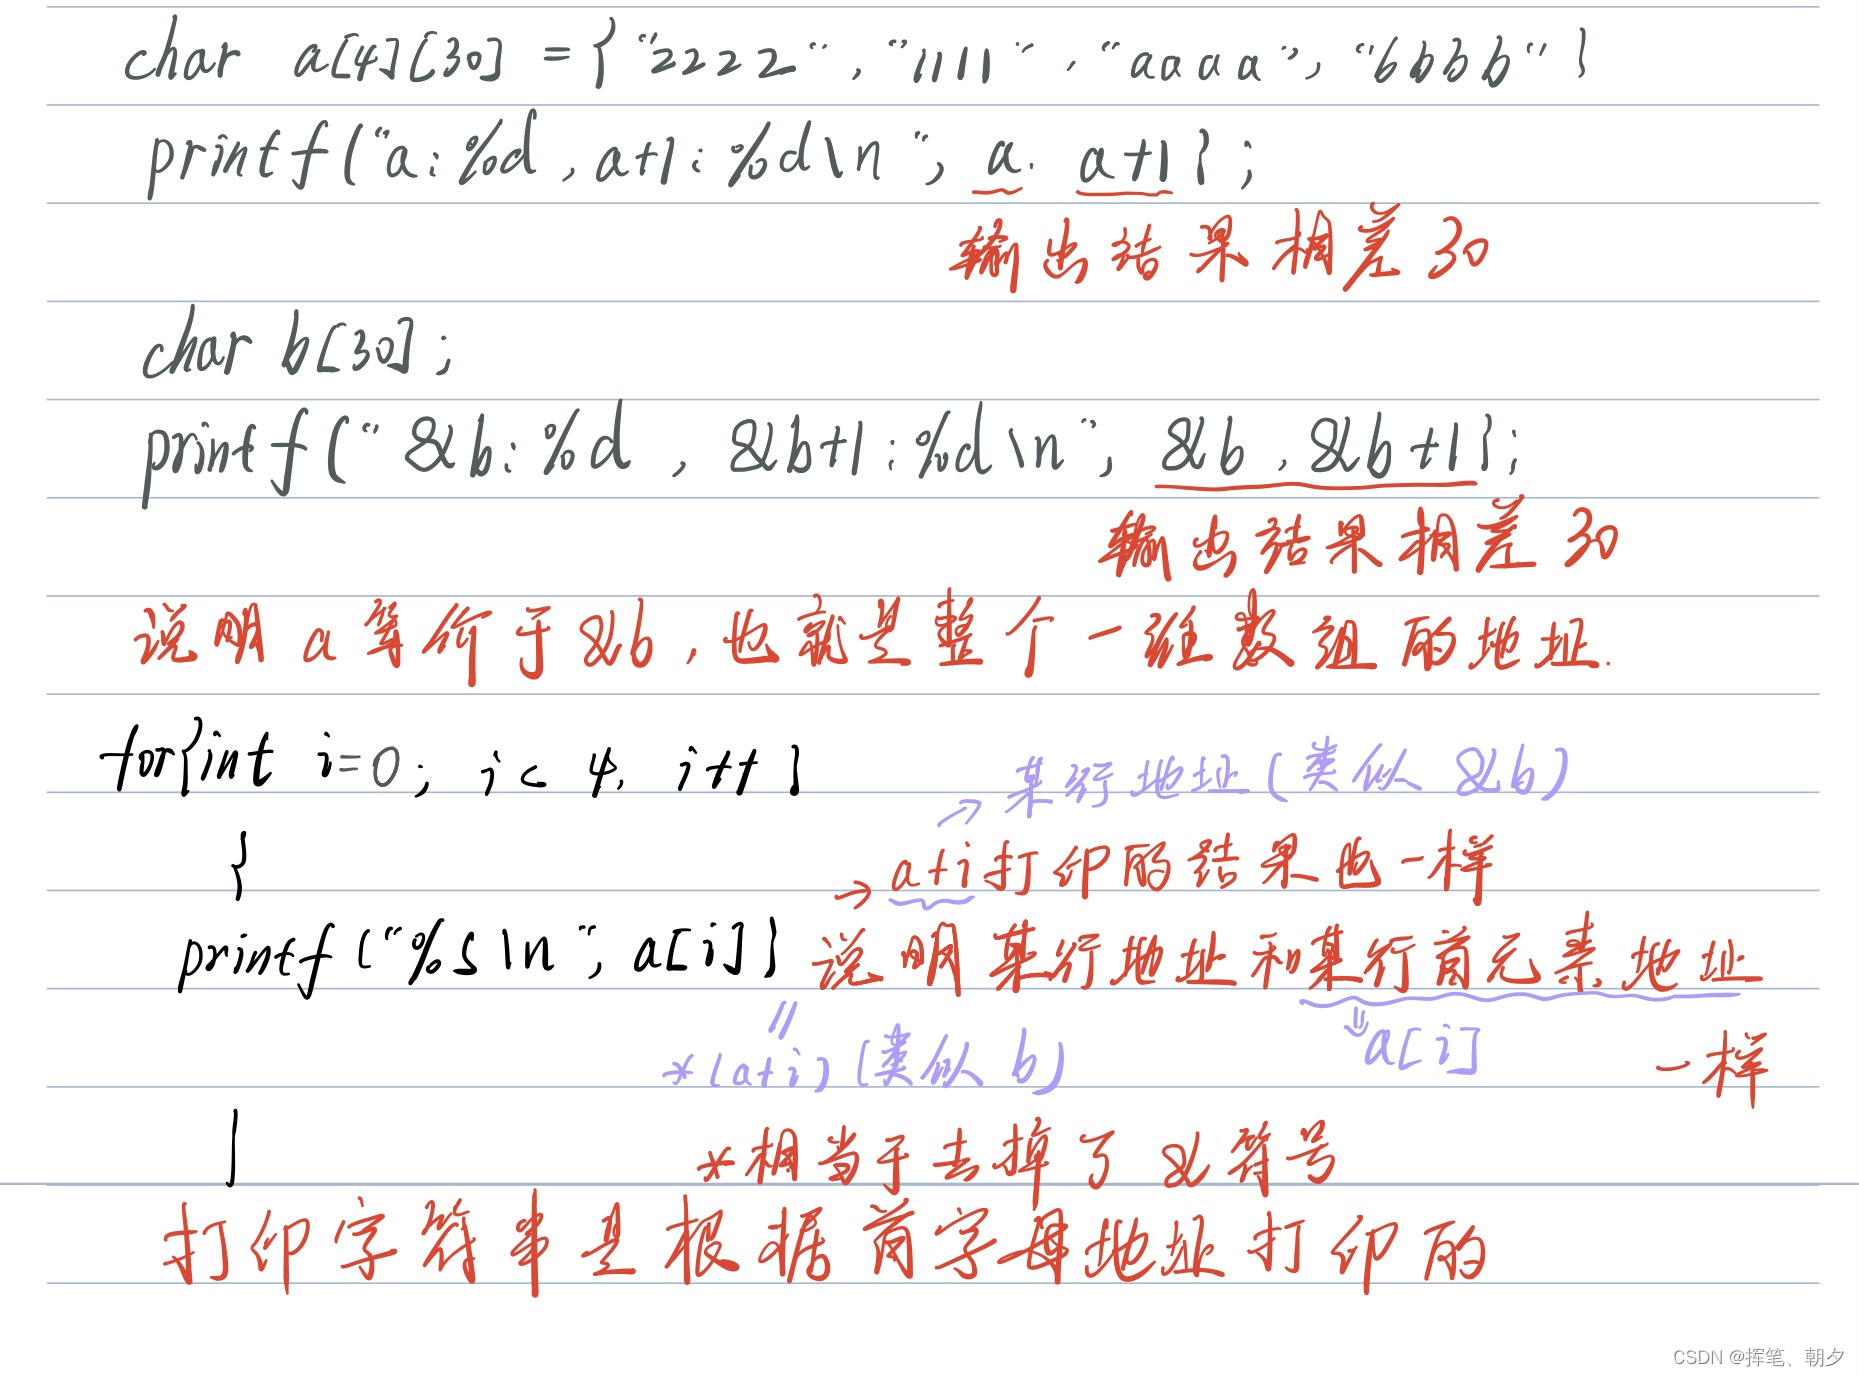 char a[4][30] = {"2222", "1111", "aaaa", "bbbb"}
printf("a: %d, a+1: %d\n", a, a+1);
输出结果相差30
char b[30];
printf("&b: %d, &b+1: %d\n", &b, &b+1);
输出结果相差30
说明a等价于&b,也就是整个一维数组的地址.
for(int i=0; i<4, i++)
→某行地址(类似&b)
{
→a+i打印的结果也一样
printf("%s\n", a[i])
说明某行地址和某行首元素地址
一样
||
*(a+i)(类似b)
⇓a[i]
}
*相当于去掉了&符号
打印字符串是根据首字母地址打印的
CSDN @挥笔、朝夕